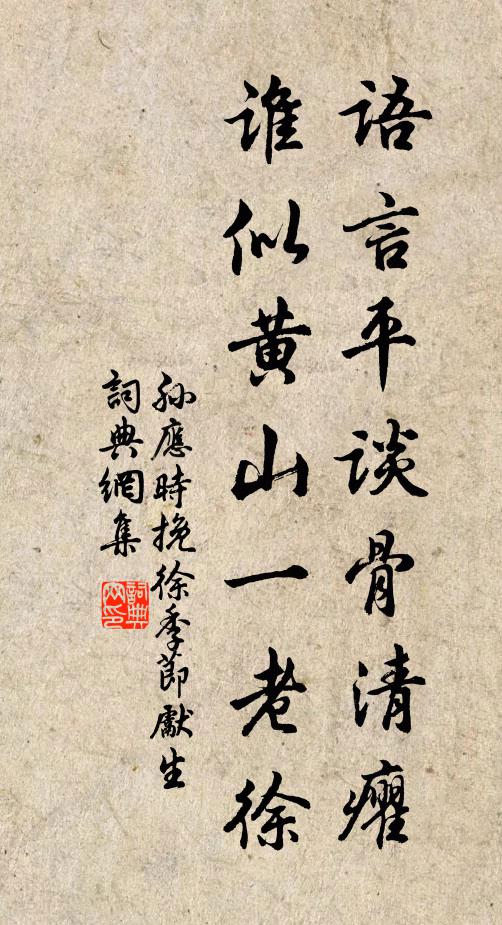 语言平谈骨清癯
谁似黄山一老徐
孙應時挽徐季節獻生
詞典網集
詞典網印